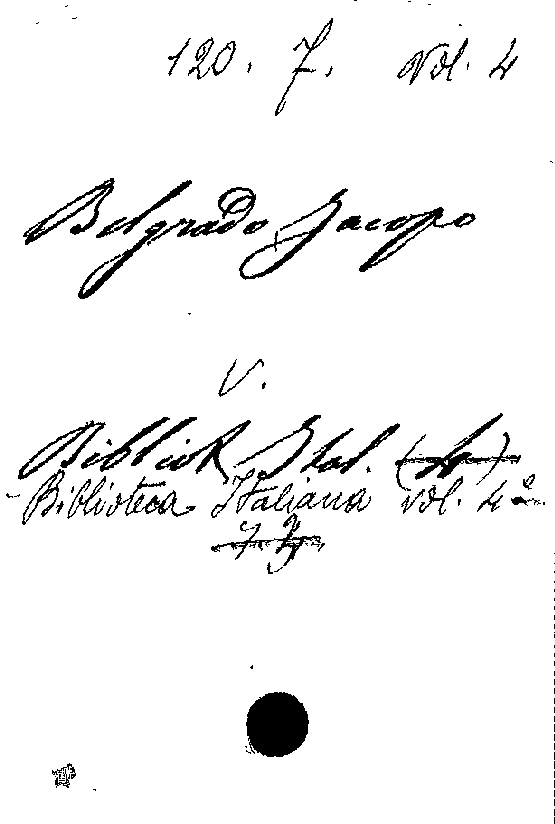 120. 7. Vol. 4
Belgrado Jacopo
V.
Bibliot Ital. (4)
Biblioteca Italiana vol. 4º